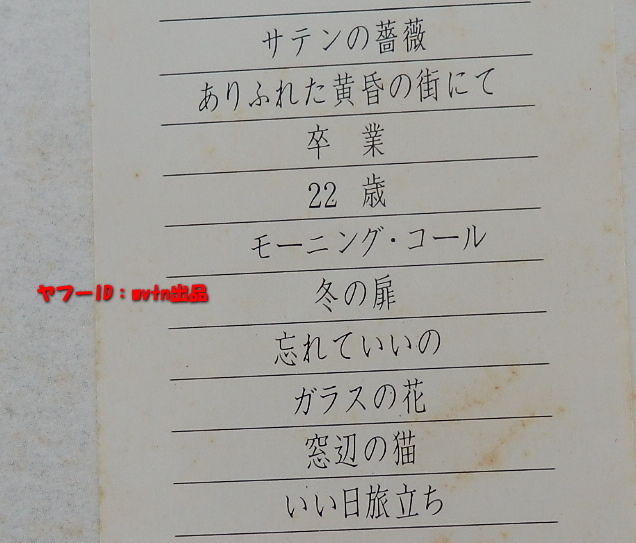 サテンの薔薇
ありふれた黄昏の街にて
卒　業
22　歳
モーニング・コール
ヤフーID：mvtn出品
冬の扉
忘れていいの
ガラスの花
窓辺の猫
いい日旅立ち